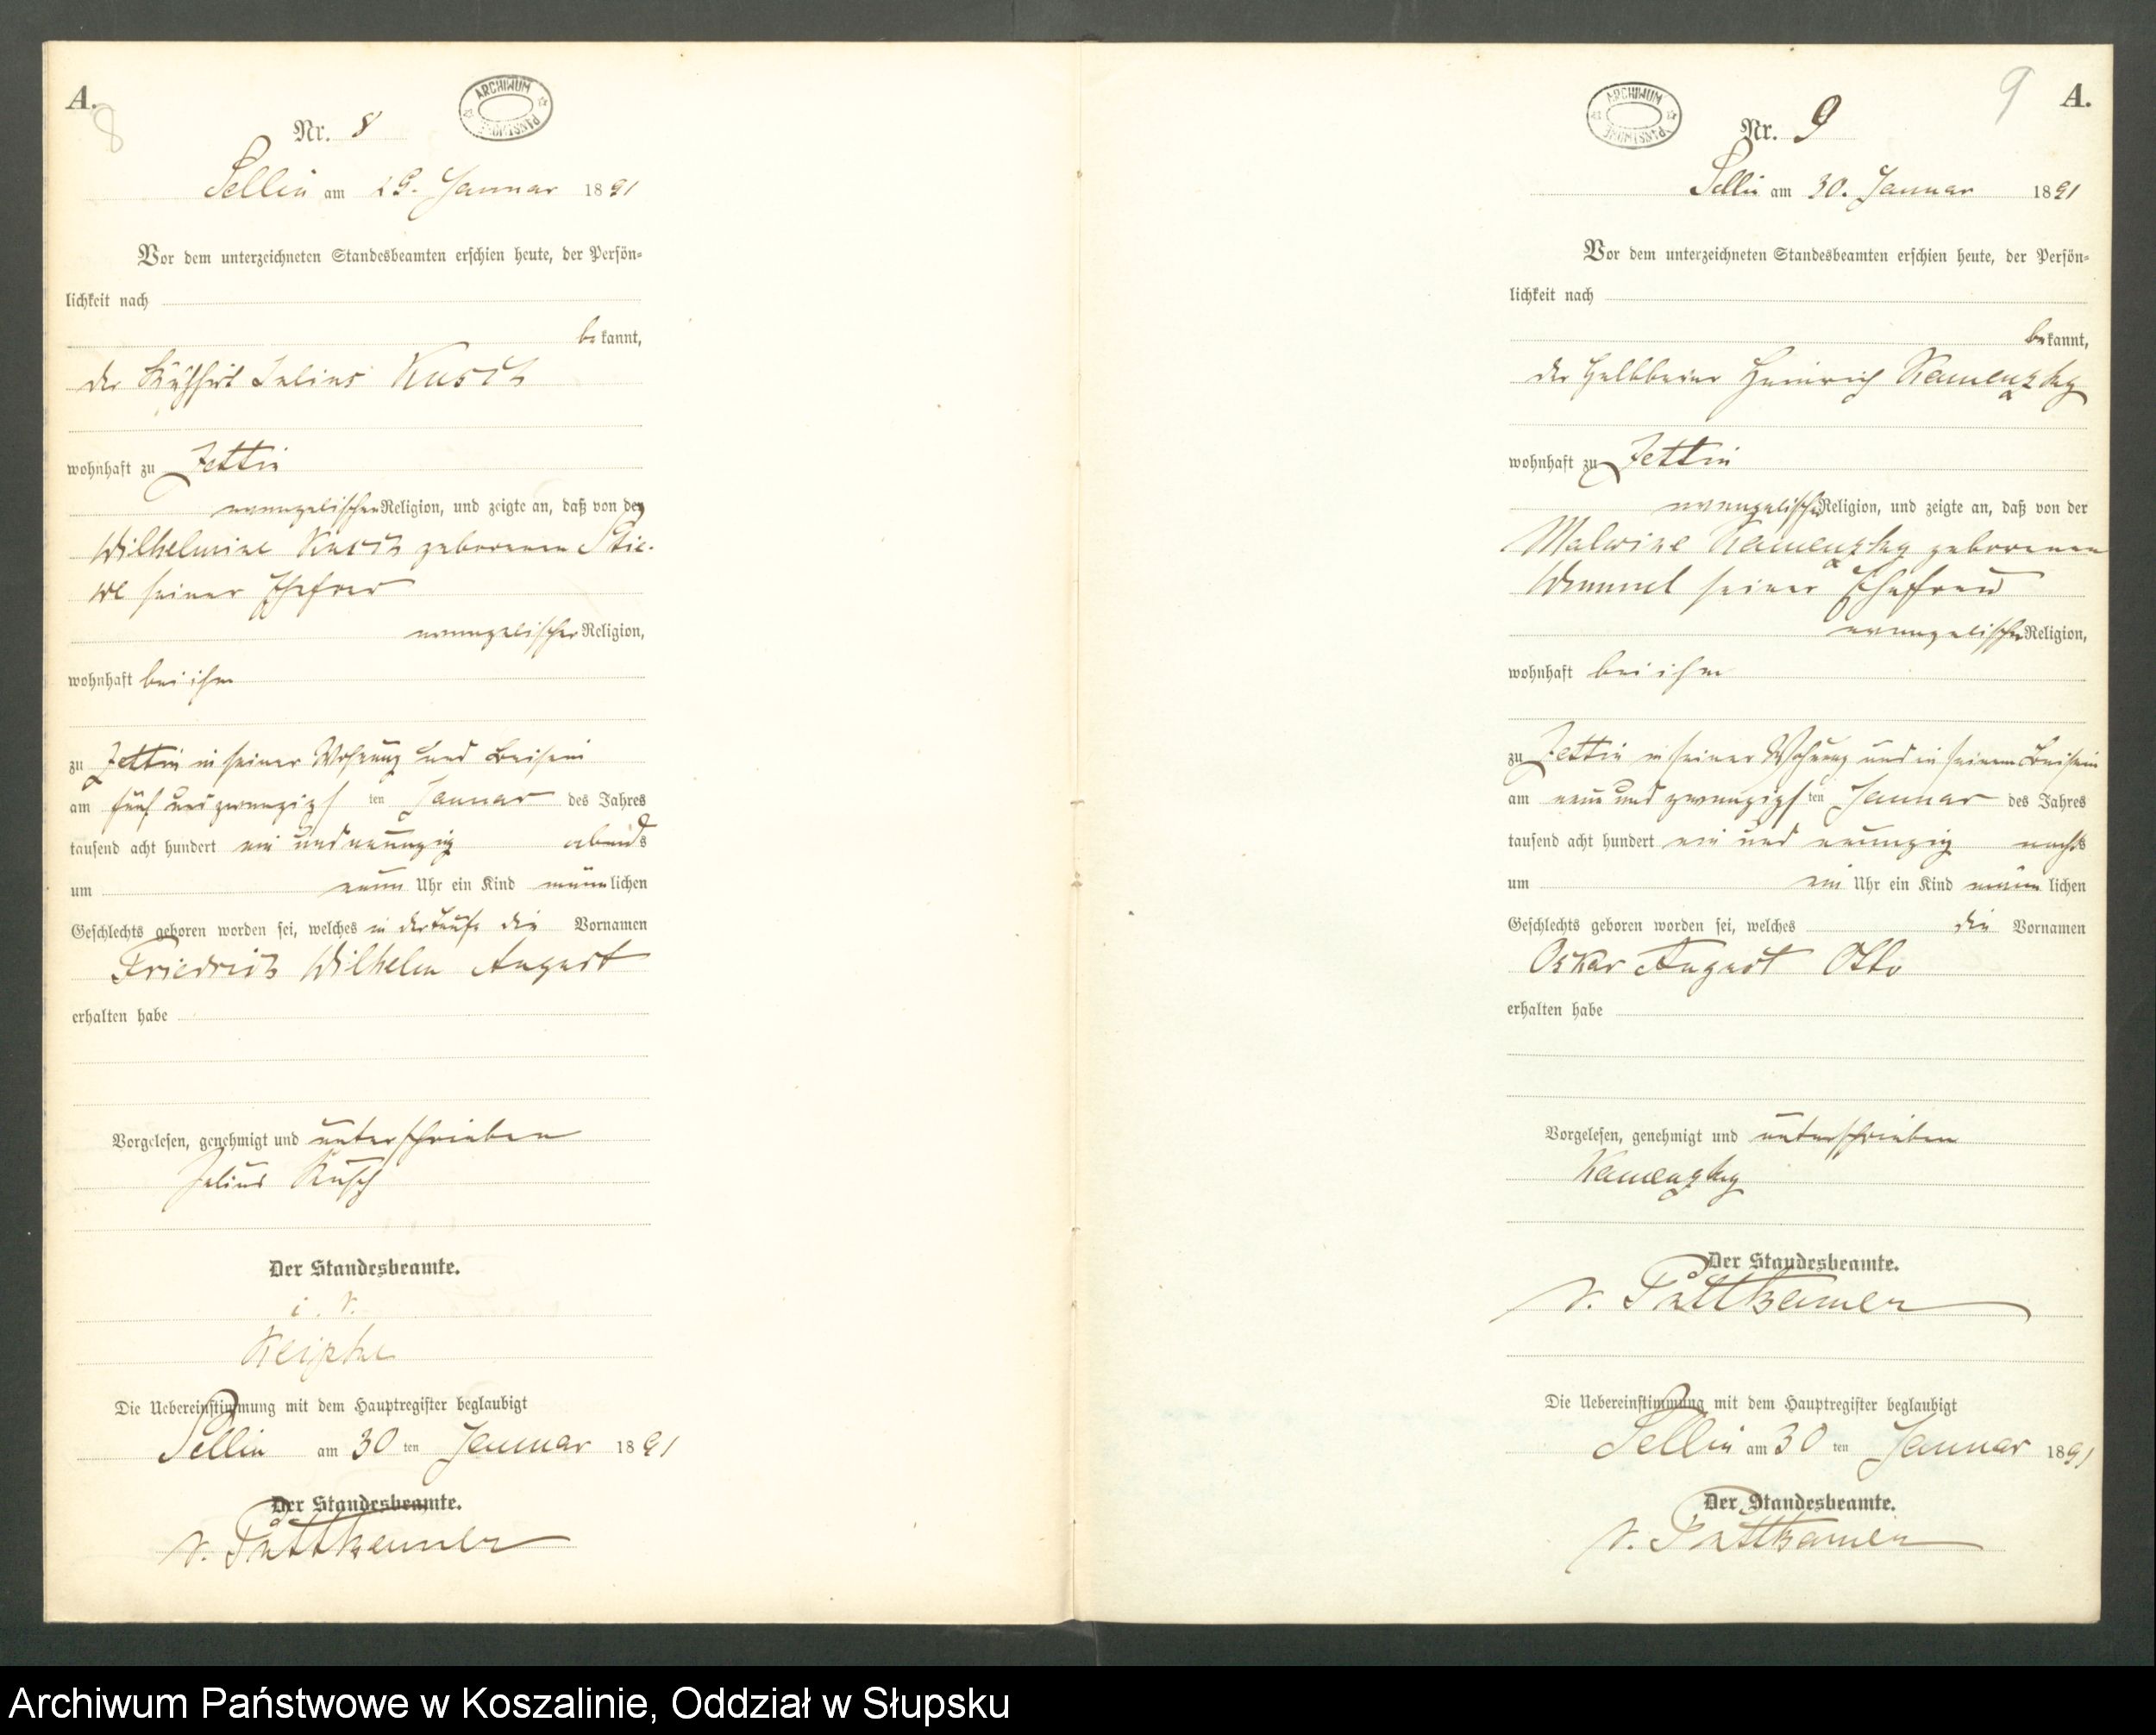 A.
8
ARCHIWUM PAŃSTWOWE
Nr. 8
Sellin am 29. Januar 1891
Vor dem unterzeichneten Standesbeamten erschien heute, der Persön-
lichkeit nach
bekannt,
der Julius Kusch
wohnhaft zu Zettin
evangelischer Religion, und zeigte an, daß von der
Wilhelmine Kusch geborenen Stie-
we seiner Ehefrau
evangelischer Religion,
wohnhaft bei ihm
zu Zettin in seiner Wohnung und Beisein
am fünf und zwanzigsten Januar des Jahres
tausend acht hundert ein und neunzig abends
um neun Uhr ein Kind männlichen
Geschlechts geboren worden sei, welches in der Taufe die Vornamen
Friedrich Wilhelm August
erhalten habe
Vorgelesen, genehmigt und unterschrieben
Julius Kusch
Der Standesbeamte.
i. V.
Die Uebereinstimmung mit dem Hauptregister beglaubigt
Sellin am 30 ten Januar 1891
Der Standesbeamte.
v. Puttkamer
9
A.
ARCHIWUM PAŃSTWOWE
Nr. 9
Sellin am 30. Januar 1891
Vor dem unterzeichneten Standesbeamten erschien heute, der Persön-
lichkeit nach
bekannt,
der Halbbauer Heinrich Kamenzky
wohnhaft zu Zettin
evangelischer Religion, und zeigte an, daß von der
Malwine Kamenzky geborenen
Wummel seiner Ehefrau
evangelischer Religion,
wohnhaft bei ihm
zu Zettin in seiner Wohnung und in seinem Beisein
am neun und zwanzigsten Januar des Jahres
tausend acht hundert ein und neunzig nachts
um ein Uhr ein Kind männlichen
Geschlechts geboren worden sei, welches die Vornamen
Oskar August Otto
erhalten habe
Vorgelesen, genehmigt und unterschrieben
Kamenzky
Der Standesbeamte.
v. Puttkamer
Die Uebereinstimmung mit dem Hauptregister beglaubigt
Sellin am 30 ten Januar 1891
Der Standesbeamte.
v. Puttkamer
Archiwum Państwowe w Koszalinie, Oddział w Słupsku